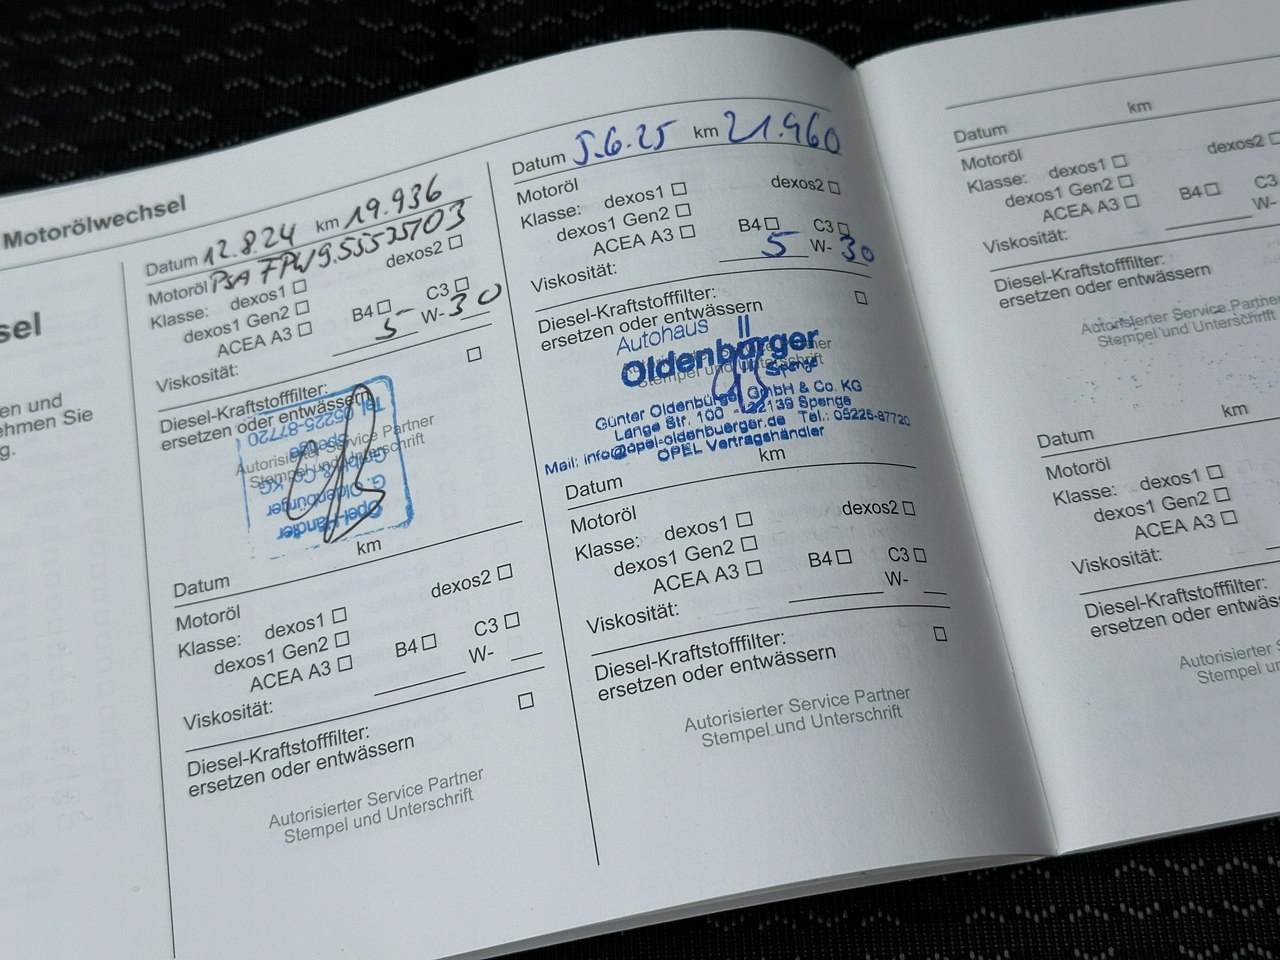 Motorölwechsel
sel
en und
ehmen Sie
g.
Datum 12.8.24 km 19.936
Motoröl PSA FPW9.55535703
Klasse: dexos1 ☐ dexos2 ☐
dexos1 Gen2 ☐
ACEA A3 ☐ B4 ☐ C3 ☐
Viskosität: 5 W-30
Diesel-Kraftstofffilter:
ersetzen oder entwässern ☐
Autorisierter Service Partner
Stempel und Unterschrift
Opel-Händler
G. Oldenbürger
GmbH & Co. KG
Spenge
Tel. 05225-87720
Datum km
Motoröl
Klasse: dexos1 ☐ dexos2 ☐
dexos1 Gen2 ☐
ACEA A3 ☐ B4 ☐ C3 ☐
Viskosität: W-
Diesel-Kraftstofffilter:
ersetzen oder entwässern ☐
Autorisierter Service Partner
Stempel und Unterschrift
Datum 5.6.25 km 21.960
Motoröl
Klasse: dexos1 ☐ dexos2 ☐
dexos1 Gen2 ☐
ACEA A3 ☐ B4 ☐ C3 ☐
Viskosität: 5 W-30
Diesel-Kraftstofffilter:
ersetzen oder entwässern ☐
Autohaus
Oldenbürger
Spenge
Stempel und Unterschrift
Günter Oldenbürger GmbH & Co. KG
Lange Str. 100 - 32139 Spenge
Mail: info@opel-oldenbuerger.de Tel.: 05225-87720
OPEL Vertragshändler
Datum km
Motoröl
Klasse: dexos1 ☐ dexos2 ☐
dexos1 Gen2 ☐
ACEA A3 ☐ B4 ☐ C3 ☐
Viskosität: W-
Diesel-Kraftstofffilter:
ersetzen oder entwässern ☐
Autorisierter Service Partner
Stempel und Unterschrift
Datum km
Motoröl
Klasse: dexos1 ☐ dexos2 ☐
dexos1 Gen2 ☐
ACEA A3 ☐ B4 ☐ C3
Viskosität: W-
Diesel-Kraftstofffilter:
ersetzen oder entwässern
Autorisierter Service Partner
Stempel und Unterschrift
Datum km
Motoröl
Klasse: dexos1 ☐
dexos1 Gen2 ☐
ACEA A3 ☐
Viskosität:
Diesel-Kraftstofffilter:
ersetzen oder entwäss
Autorisierter
Stempel u